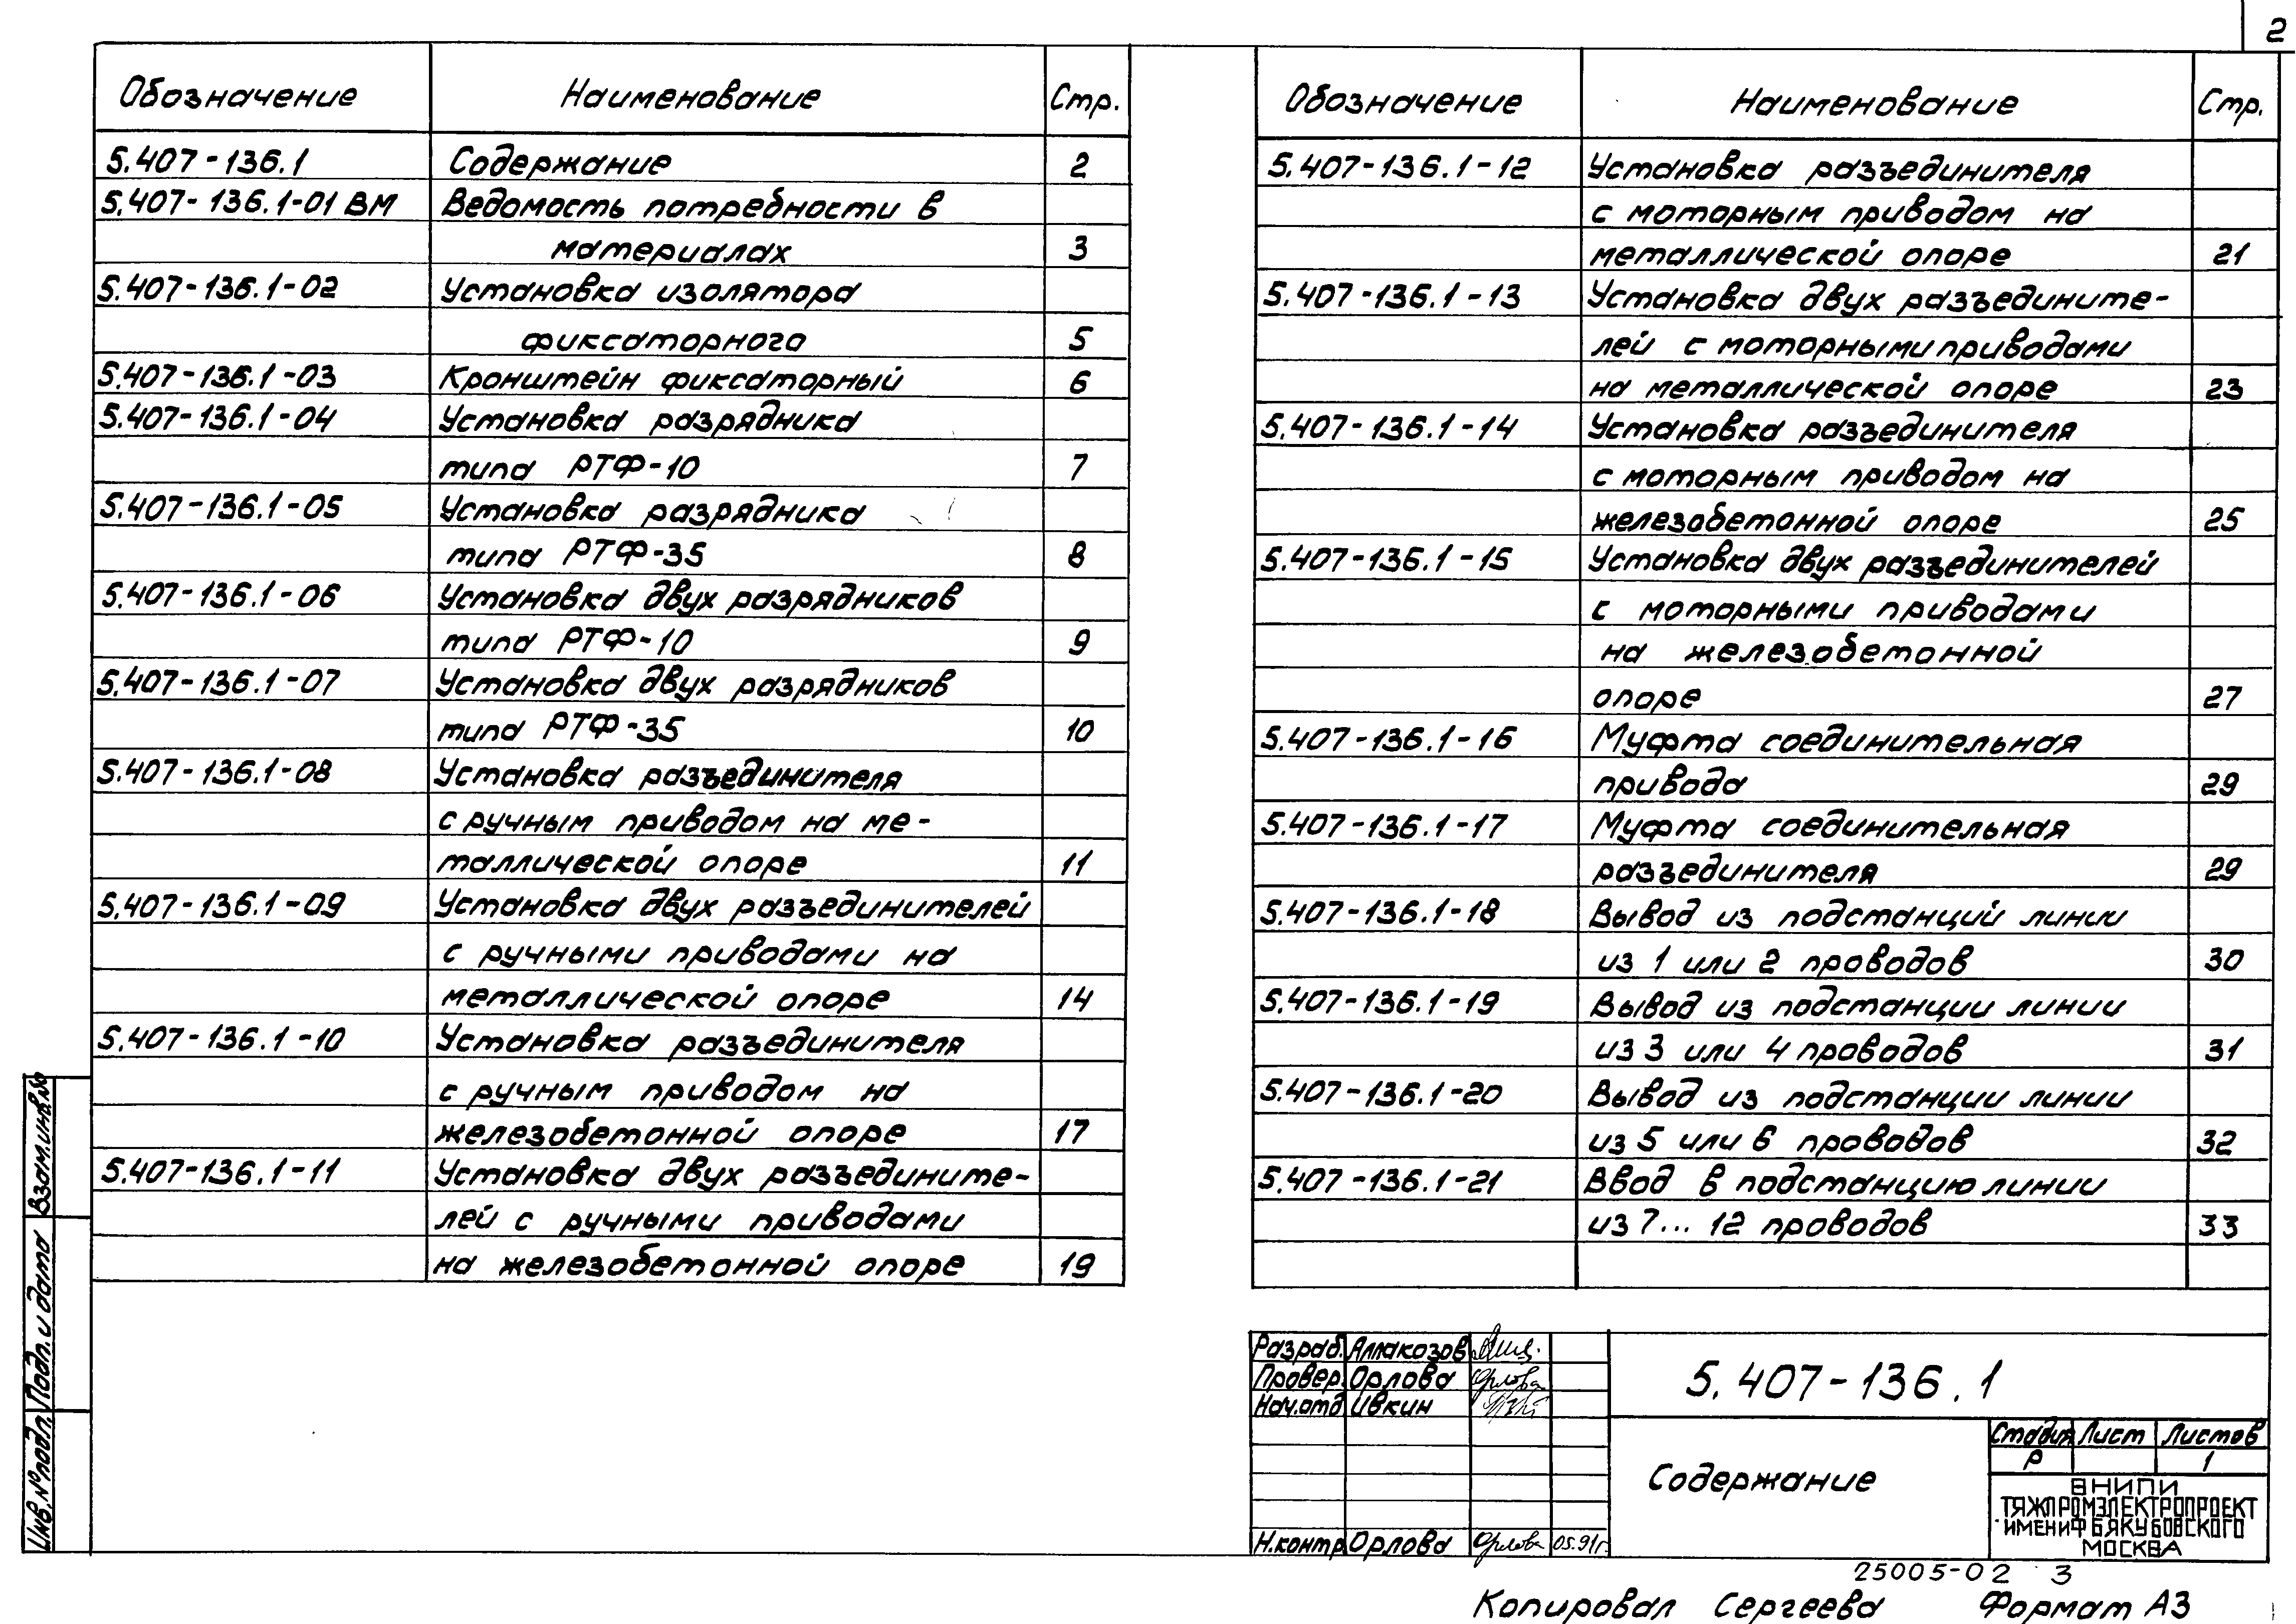 2
Обозначение Наименование Стр.
5.407-136.1 Содержание 2
5.407-136.1-01 ВМ Ведомость потребности в
материалах 3
5.407-136.1-02 Установка изолятора
фиксаторного 5
5.407-136.1-03 Кронштейн фиксаторный 6
5.407-136.1-04 Установка разрядника
типа РТФ-10 7
5.407-136.1-05 Установка разрядника
типа РТФ-35 8
5.407-136.1-06 Установка двух разрядников
типа РТФ-10 9
5.407-136.1-07 Установка двух разрядников
типа РТФ-35 10
5.407-136.1-08 Установка разъединителя
с ручным приводом на ме-
таллической опоре 11
5.407-136.1-09 Установка двух разъединителей
с ручными приводами на
металлической опоре 14
5.407-136.1-10 Установка разъединителя
с ручным приводом на
железобетонной опоре 17
5.407-136.1-11 Установка двух разъедините-
лей с ручными приводами
на железобетонной опоре 19
Обозначение Наименование Стр.
5.407-136.1-12 Установка разъединителя
с моторным приводом на
металлической опоре 21
5.407-136.1-13 Установка двух разъедините-
лей с моторными приводами
на металлической опоре 23
5.407-136.1-14 Установка разъединителя
с моторным приводом на
железобетонной опоре 25
5.407-136.1-15 Установка двух разъединителей
с моторными приводами
на железобетонной
опоре 27
5.407-136.1-16 Муфта соединительная
привода 29
5.407-136.1-17 Муфта соединительная
разъединителя 29
5.407-136.1-18 Вывод из подстанций линии
из 1 или 2 проводов 30
5.407-136.1-19 Вывод из подстанции линии
из 3 или 4 проводов 31
5.407-136.1-20 Вывод из подстанции линии
из 5 или 6 проводов 32
5.407-136.1-21 Ввод в подстанцию линии
из 7... 12 проводов 33
Взам.инв.№
Подп. и дата
Инв.№подл.
Разраб. Алпакозов
Провер. Орлова Орлова
Нач.отд Ивкин
Н.контр Орлова Орлова 05.91г.
5.407-136.1
Содержание
Стадия Лист Листов
Р 1
ВНИПИ
ТЯЖПРОМЭЛЕКТРОПРОЕКТ
ИМЕНИ Ф.Б.ЯКУБОВСКОГО
МОСКВА
25005-02 3
Копировал Сергеева Формат А3